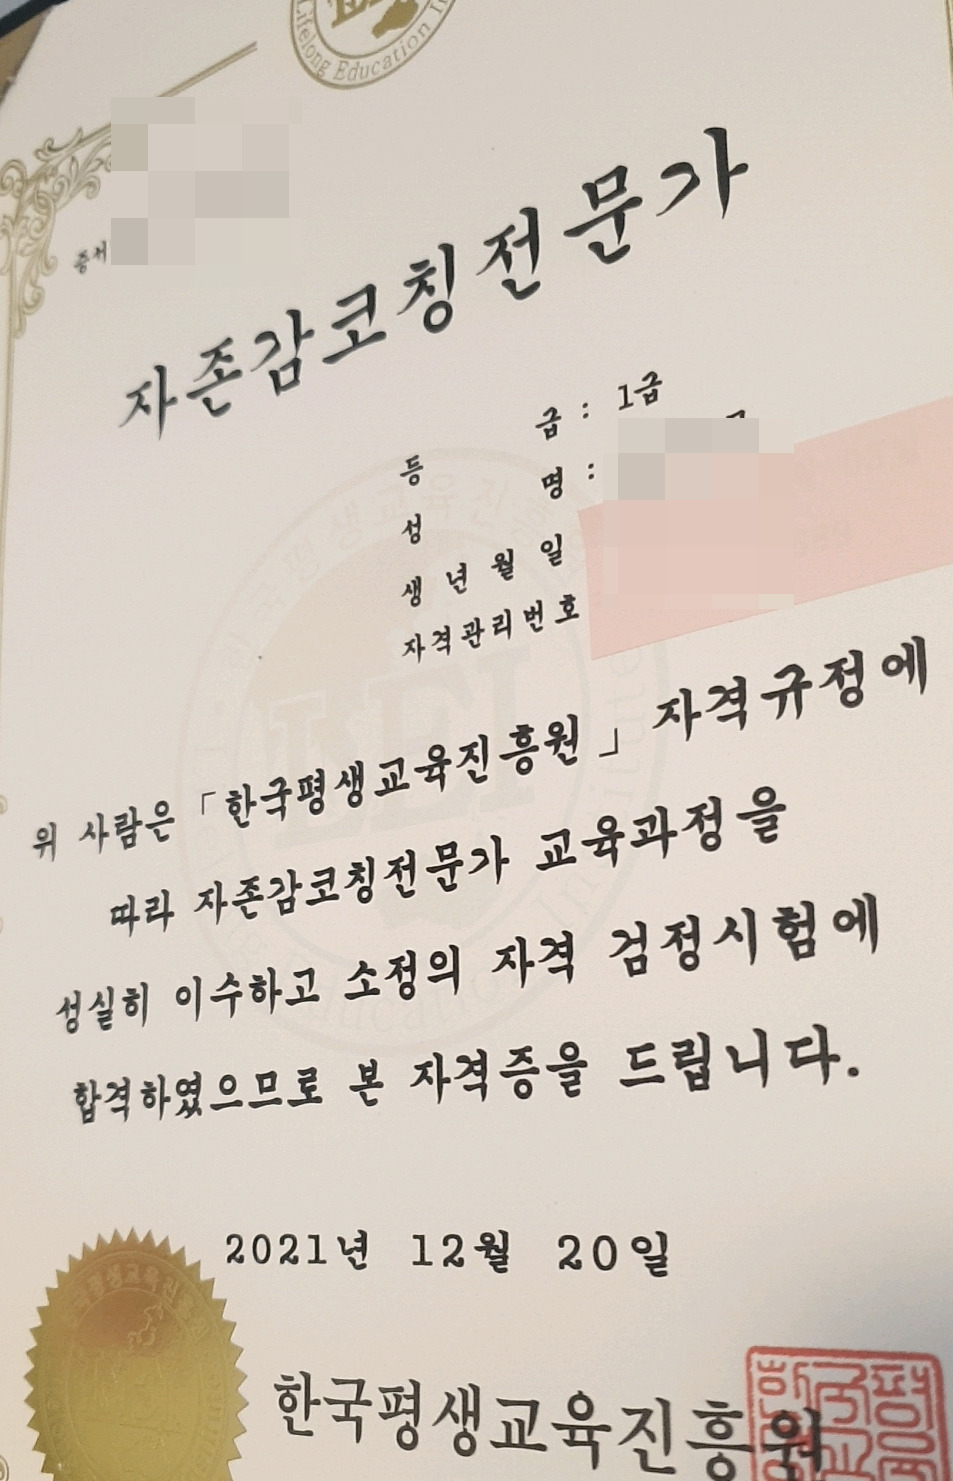 Lifelong Education
증서
자존감코칭전문가
등 급 : 1급
성 명 :
생 년 월 일
자격관리번호
위 사람은 「한국평생교육진흥원」 자격규정에
따라 자존감코칭전문가 교육과정을
성실히 이수하고 소정의 자격 검정시험에
합격하였으므로 본 자격증을 드립니다.
2021년 12월 20일
한국평생교육진흥원